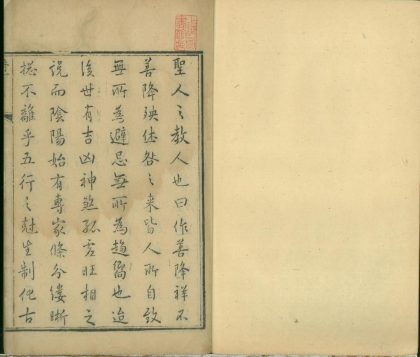 聖人之教人也曰作善降祥不
善降殃休咎之来皆人所自致
無所為避忌無所為趨嚮也迨
後世有吉凶神煞孤虛旺相之
说而陰陽始有專家條分縷晰
揔不離乎五行之尅生制化古